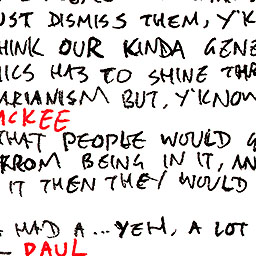 UST DISMISS THEM, Y'K
HINK OUR KINDA GENE
ICS HAS TO SHINE THR
ARIANISM BUT, Y'KNOW
MCKEE
THAT PEOPLE WOULD G
FROM BEING IN IT, AN
IT THEN THEY WOULD
HAD A ... YEH, A LOT
PAUL